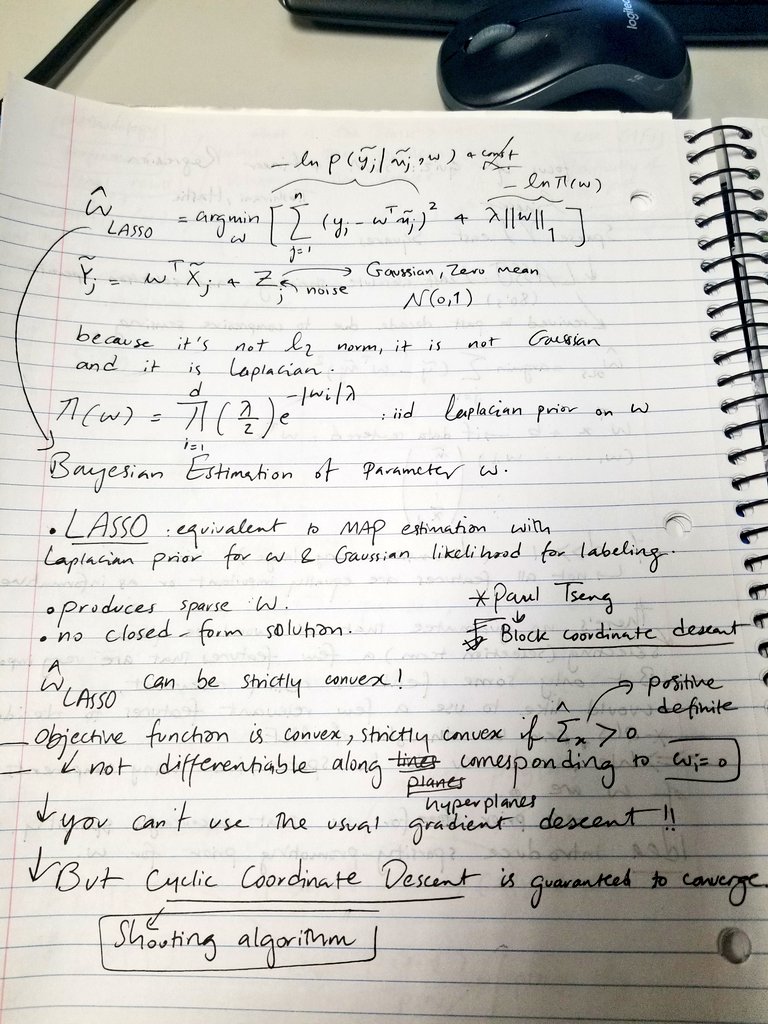 logitech
- ln p(ỹj|x̃j,w) + const
- ln π(w)
ŵ LASSO = argmin w [ Σ j=1 n (yj - wᵀx̃j)² + λ||w||₁ ]
Ỹj = wᵀX̃j + Zj → Gaussian, Zero mean
noise N(0,1)
because it's not l₂ norm, it is not Gaussian
and it is Laplacian.
π(w) = Π i=1 d (λ/2) e^-|wi|λ : iid Laplacian prior on w
Bayesian Estimation of parameter w.
• LASSO : equivalent to MAP estimation with
Laplacian prior for w & Gaussian likelihood for labeling.
• produces sparse w. * Paul Tseng
• no closed-form solution. ↓ Block coordinate descent
ŵ LASSO can be strictly convex!
→ positive definite
— Objective function is convex, strictly convex if Σ̂x > 0
— ↓ not differentiable along lines planes hyperplanes corresponding to wi = 0
↓ you can't use the usual gradient descent !!
↓ But Cyclic Coordinate Descent is guaranteed to converge.
Shooting algorithm